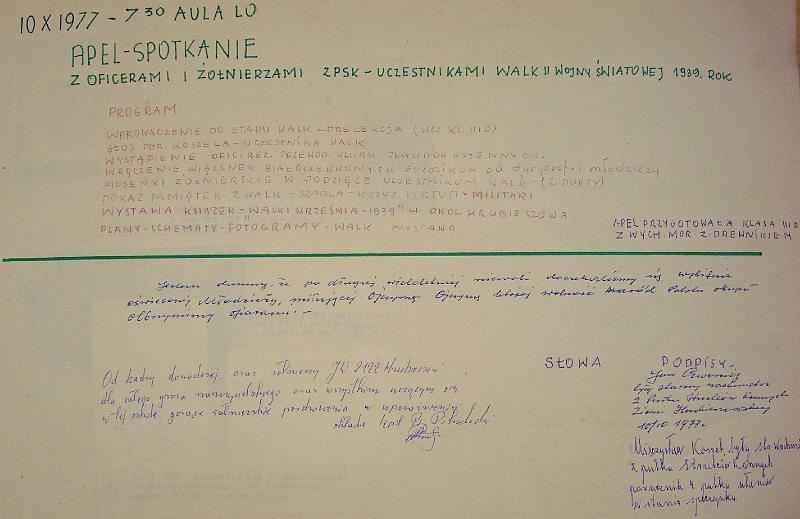 10 X 1977 - 7 30 AULA LO
APEL-SPOTKANIE
Z OFICERAMI I ŻOŁNIERZAMI 2PSK - UCZESTNIKAMI WALK II WOJNY ŚWIATOWEJ 1939. ROK
PROGRAM
WPROWADZENIE DO ETAPU WALK - PRELEKCJA (UCZ KL. III D)
GŁOS POR. KOSZELA - UCZESTNIKA WALK
WYSTĄPIENIE OFIC. REZ. PRZEWOD. KLUBU INWALIDÓW WOJENNYCH.
WRĘCZENIE WIĄZANEK BIAŁOCZERWONYCH GOŹDZIKÓW od dyr. prof. i młodzieży
PIOSENKI ŻOŁNIERSKIE W PODZIĘCE UCZESTNIKOM WALK - (2 DUETY)
POKAZ PAMIĄTEK Z WALK - SZABLA - KRZYŻ VIRTUTI - MILITARI
WYSTAWA KSIĄŻEK - WALKI WRZEŚNIA - 1939" W OKOL. HRUBIESZOWA
PLANY - SCHEMATY - FOTOGRAMY - WALK WYSTAWA
APEL PRZYGOTOWAŁA KLASA III D
Z WYCH. MGR Z. DREWNIKIEM
Jestem dumny, że po długiej wieloletniej niewoli doczekaliśmy się
oświeconej Młodzieży, miłującej Ojczyznę Ojczyznę której wolność Naród Polski okupił
olbrzymimi ofiarami. -
SŁOWA
PODPISY.
Od kadry dowódczej oraz żołnierzy JW 2192 Hrubieszów
dla całego grona nauczycielskiego oraz wszystkim uczącym się
w tej szkole gorące żołnierskie pozdrowienia w
składa
Jan
były starszy wachmistrz
2 Pułku Strzelców Konnych
Ziemi Hrubieszowskiej
10/10 1977 r
Mieczysław Koszel, były
2 pułku Strzelców Konnych
porucznik 4 pułku ułanów
w stanie spoczynku.